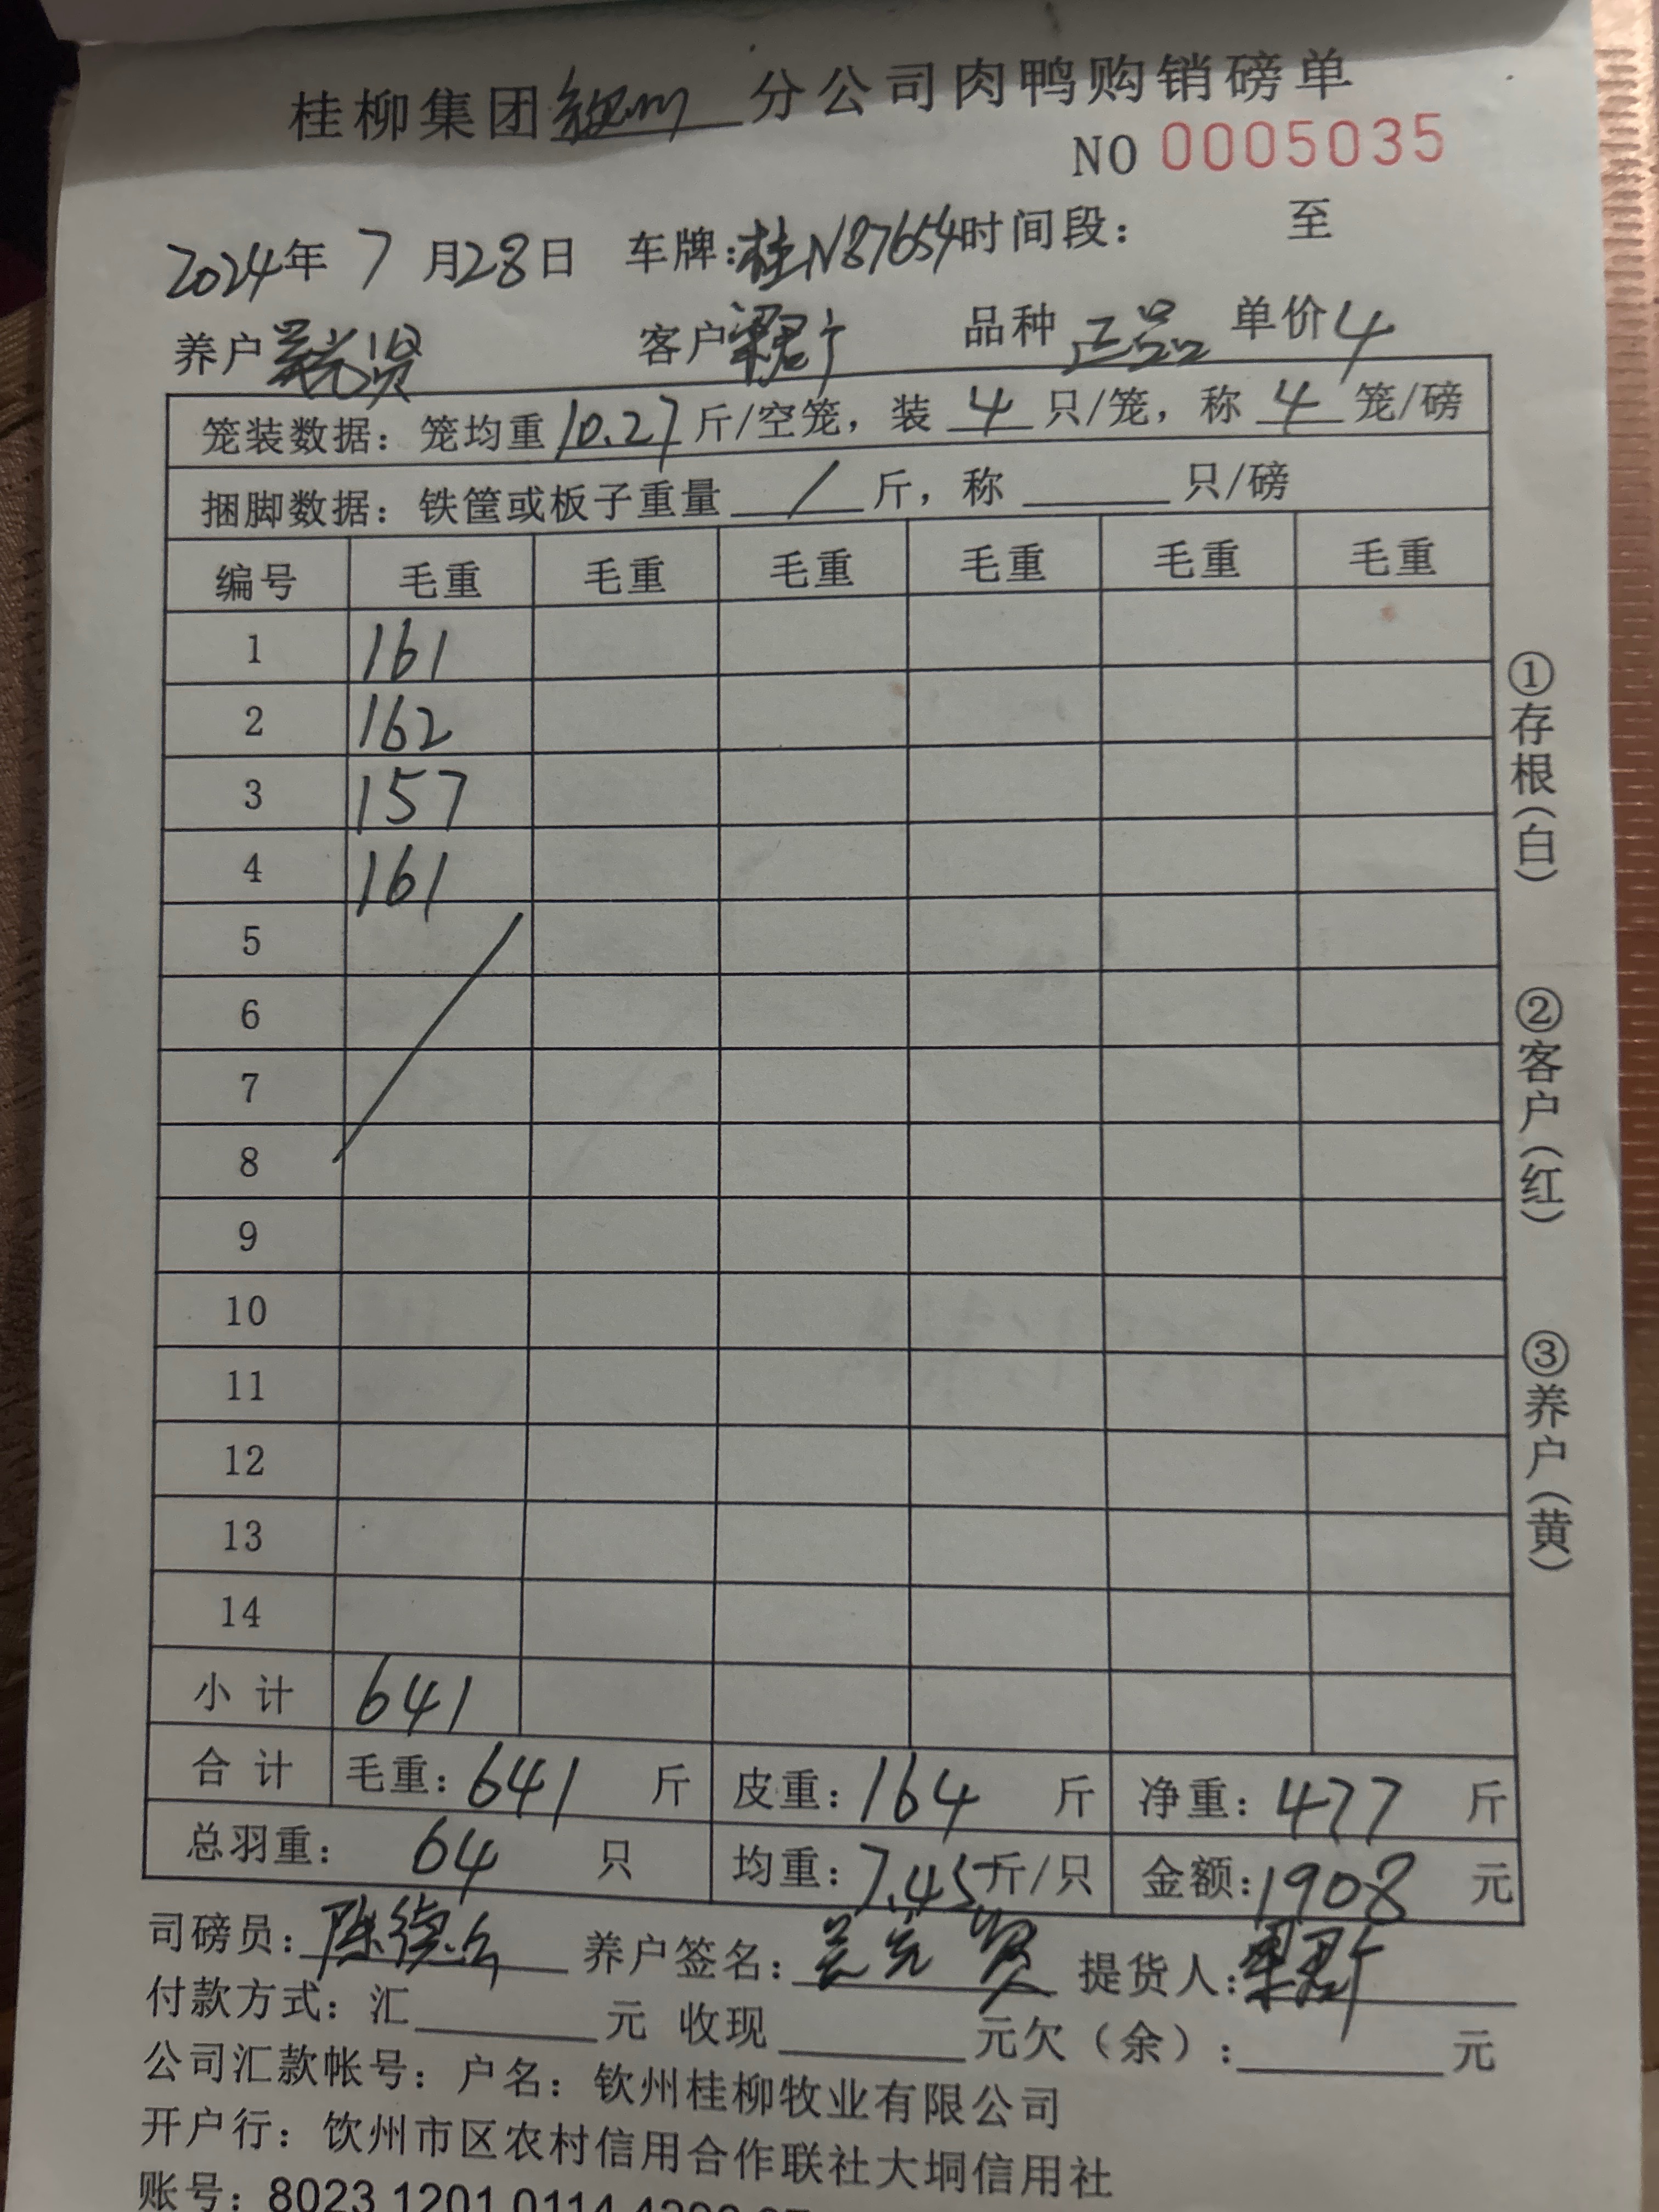 桂柳集团钦州分公司肉鸭购销磅单
NO 0005035
2024年 7 月28日 车牌:桂N87654时间段: 至
养户 客户 品种 正品 单价4
笼装数据: 笼均重10.27斤/空笼, 装 4 只/笼, 称 4 笼/磅
捆脚数据: 铁筐或板子重量 / 斤, 称 只/磅
编号 毛重 毛重 毛重 毛重 毛重 毛重
1 161
2 162
3 157
4 161
5
6
7
8
9
10
11
12
13
14
小 计 641
合 计 毛重: 641 斤 皮重: 164 斤 净重: 477 斤
总羽重: 64 只 均重: 7.45斤/只 金额: 1908 元
司磅员: 养户签名: 提货人:
付款方式: 汇 元 收现 元欠(余): 元
公司汇款帐号: 户名: 钦州桂柳牧业有限公司
开户行: 钦州市区农村信用合作联社大垌信用社
账号: 8023 1201 0114
①存根(白)
②客户(红)
③养户(黄)